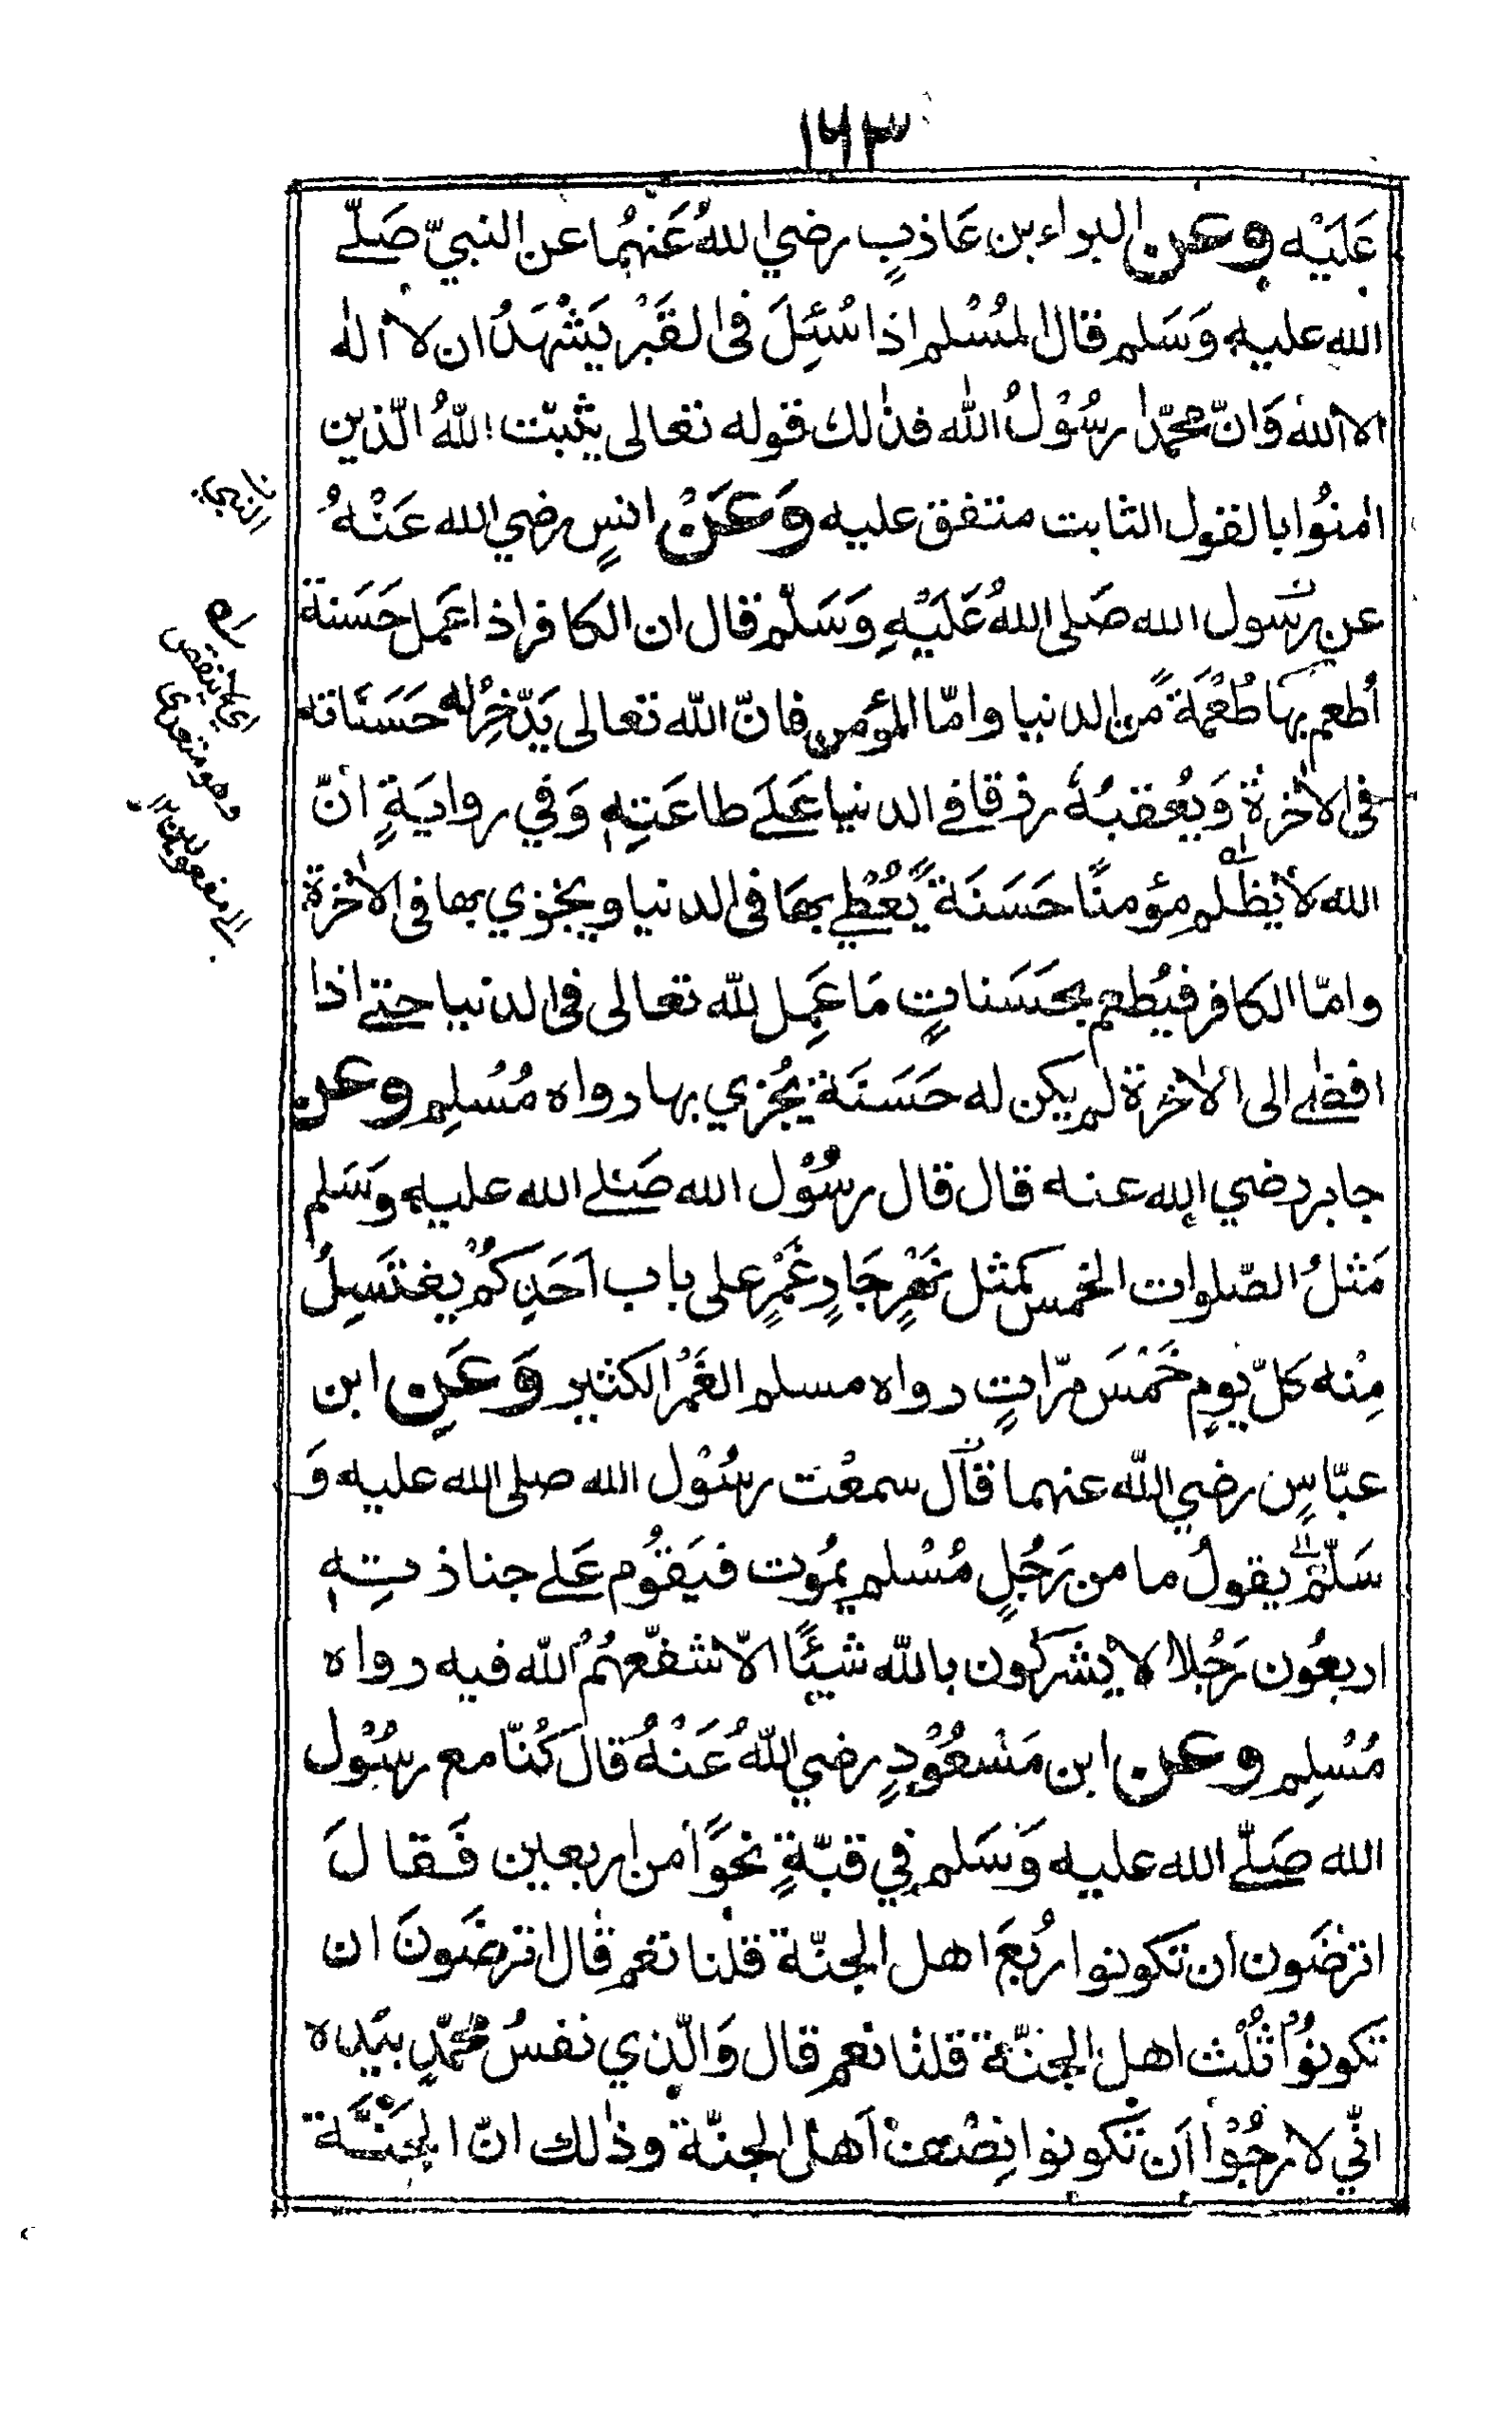 ١٦٣
عَلَيْه وعن البراء بن عَاذبٍ رضي اللهُ عَنهُما عن النبيّ صَلّے
الله عليه وَسَلم قال المُسْلم اذا سُئِلَ فى القَبْر يَشْهَدُ ان لا اله
الا الله وَانّ محمّدا رسُوْلُ الله فذٰلك قوله تعالى يثبّت اللهُ الّذين
اٰمنُوا بالقول الثابت متفق عليه وَعَنْ انسٍ رضي الله عَنْهُ
عن رسول الله صَلى اللهُ عَلَيْهِ وَسَلّم قال ان الكافر اذا عَمل حَسَنة
اُطعم بهَا طُعْمَةً من الدنيا وامّا المؤمن فانّ الله تعالى يَدّخِرُ له حَسَنَاته
فى الاٰخرة وَيُعقبُهُ رزقا فے الدنيا عَلَے طاعَتِهٖ وَفي روايَةٍ انّ
الله لا يَظلم مؤمنًا حَسَنَةً يُعْطٰے بهَا فى الدنيا ويجزي بها فى الاٰخرة
وامّا الكافر فيُطعم بحَسَناتٍ مَا عَمِل لله تعالى فى الدنيا حتے اذا
افضٰے الى الاٰخرة لم يكن له حَسَنَة يُجْزي بها رواه مُسْلِم وعن
جابر رضي الله عنه قال قال رسُوْل الله صَلے الله عليه وَسَلم
مَثلُ الصّلوات الخمس كمثل نَهْرٍ جَارٍ غَمْرٍ على باب اَحَدِكُمْ يغتَسِلُ
مِنْه كلّ يومٍ خَمْسَ مرّاتٍ رواه مسلم الغَمْرُ الكثير وَعَنِ ابن
عبّاسٍ رضي الله عنهما قال سمعْت رسُوْل الله صلى الله عليه وَ
سَلّم يقولُ ما من رَجُلٍ مُسْلم يمُوت فيَقوُم عَلے جناذتِهٖ
اربعُون رَجُلا لا يشركون بالله شيئًا الّا شفّعهُمُ الله فيه رواه
مُسْلِم وعن ابن مَسْعُوْدٍ رضي اللهُ عَنْهُ قال كُنّا مع رسُوْل
الله صَلّے الله عليه وَسَلم في قبّةٍ نحوًا من اربعين فَقالَ
اترضَون ان تكونوا رُبعَ اهل الجنّة قلنا نعم قال اترضَونَ ان
تكونُوْا ثُلُث اهل الجنّة قلنا نعم قال وَالّذي نفسُ محمّدٍ بيَدِه
انّي لارجُوْا اَن تكونوا نِصْفَ اَهل الجنّة وذٰلك انّ الجَنَّة
النبي
اي لا ينقص
وهو متعدى
الے مفعولين ١٢